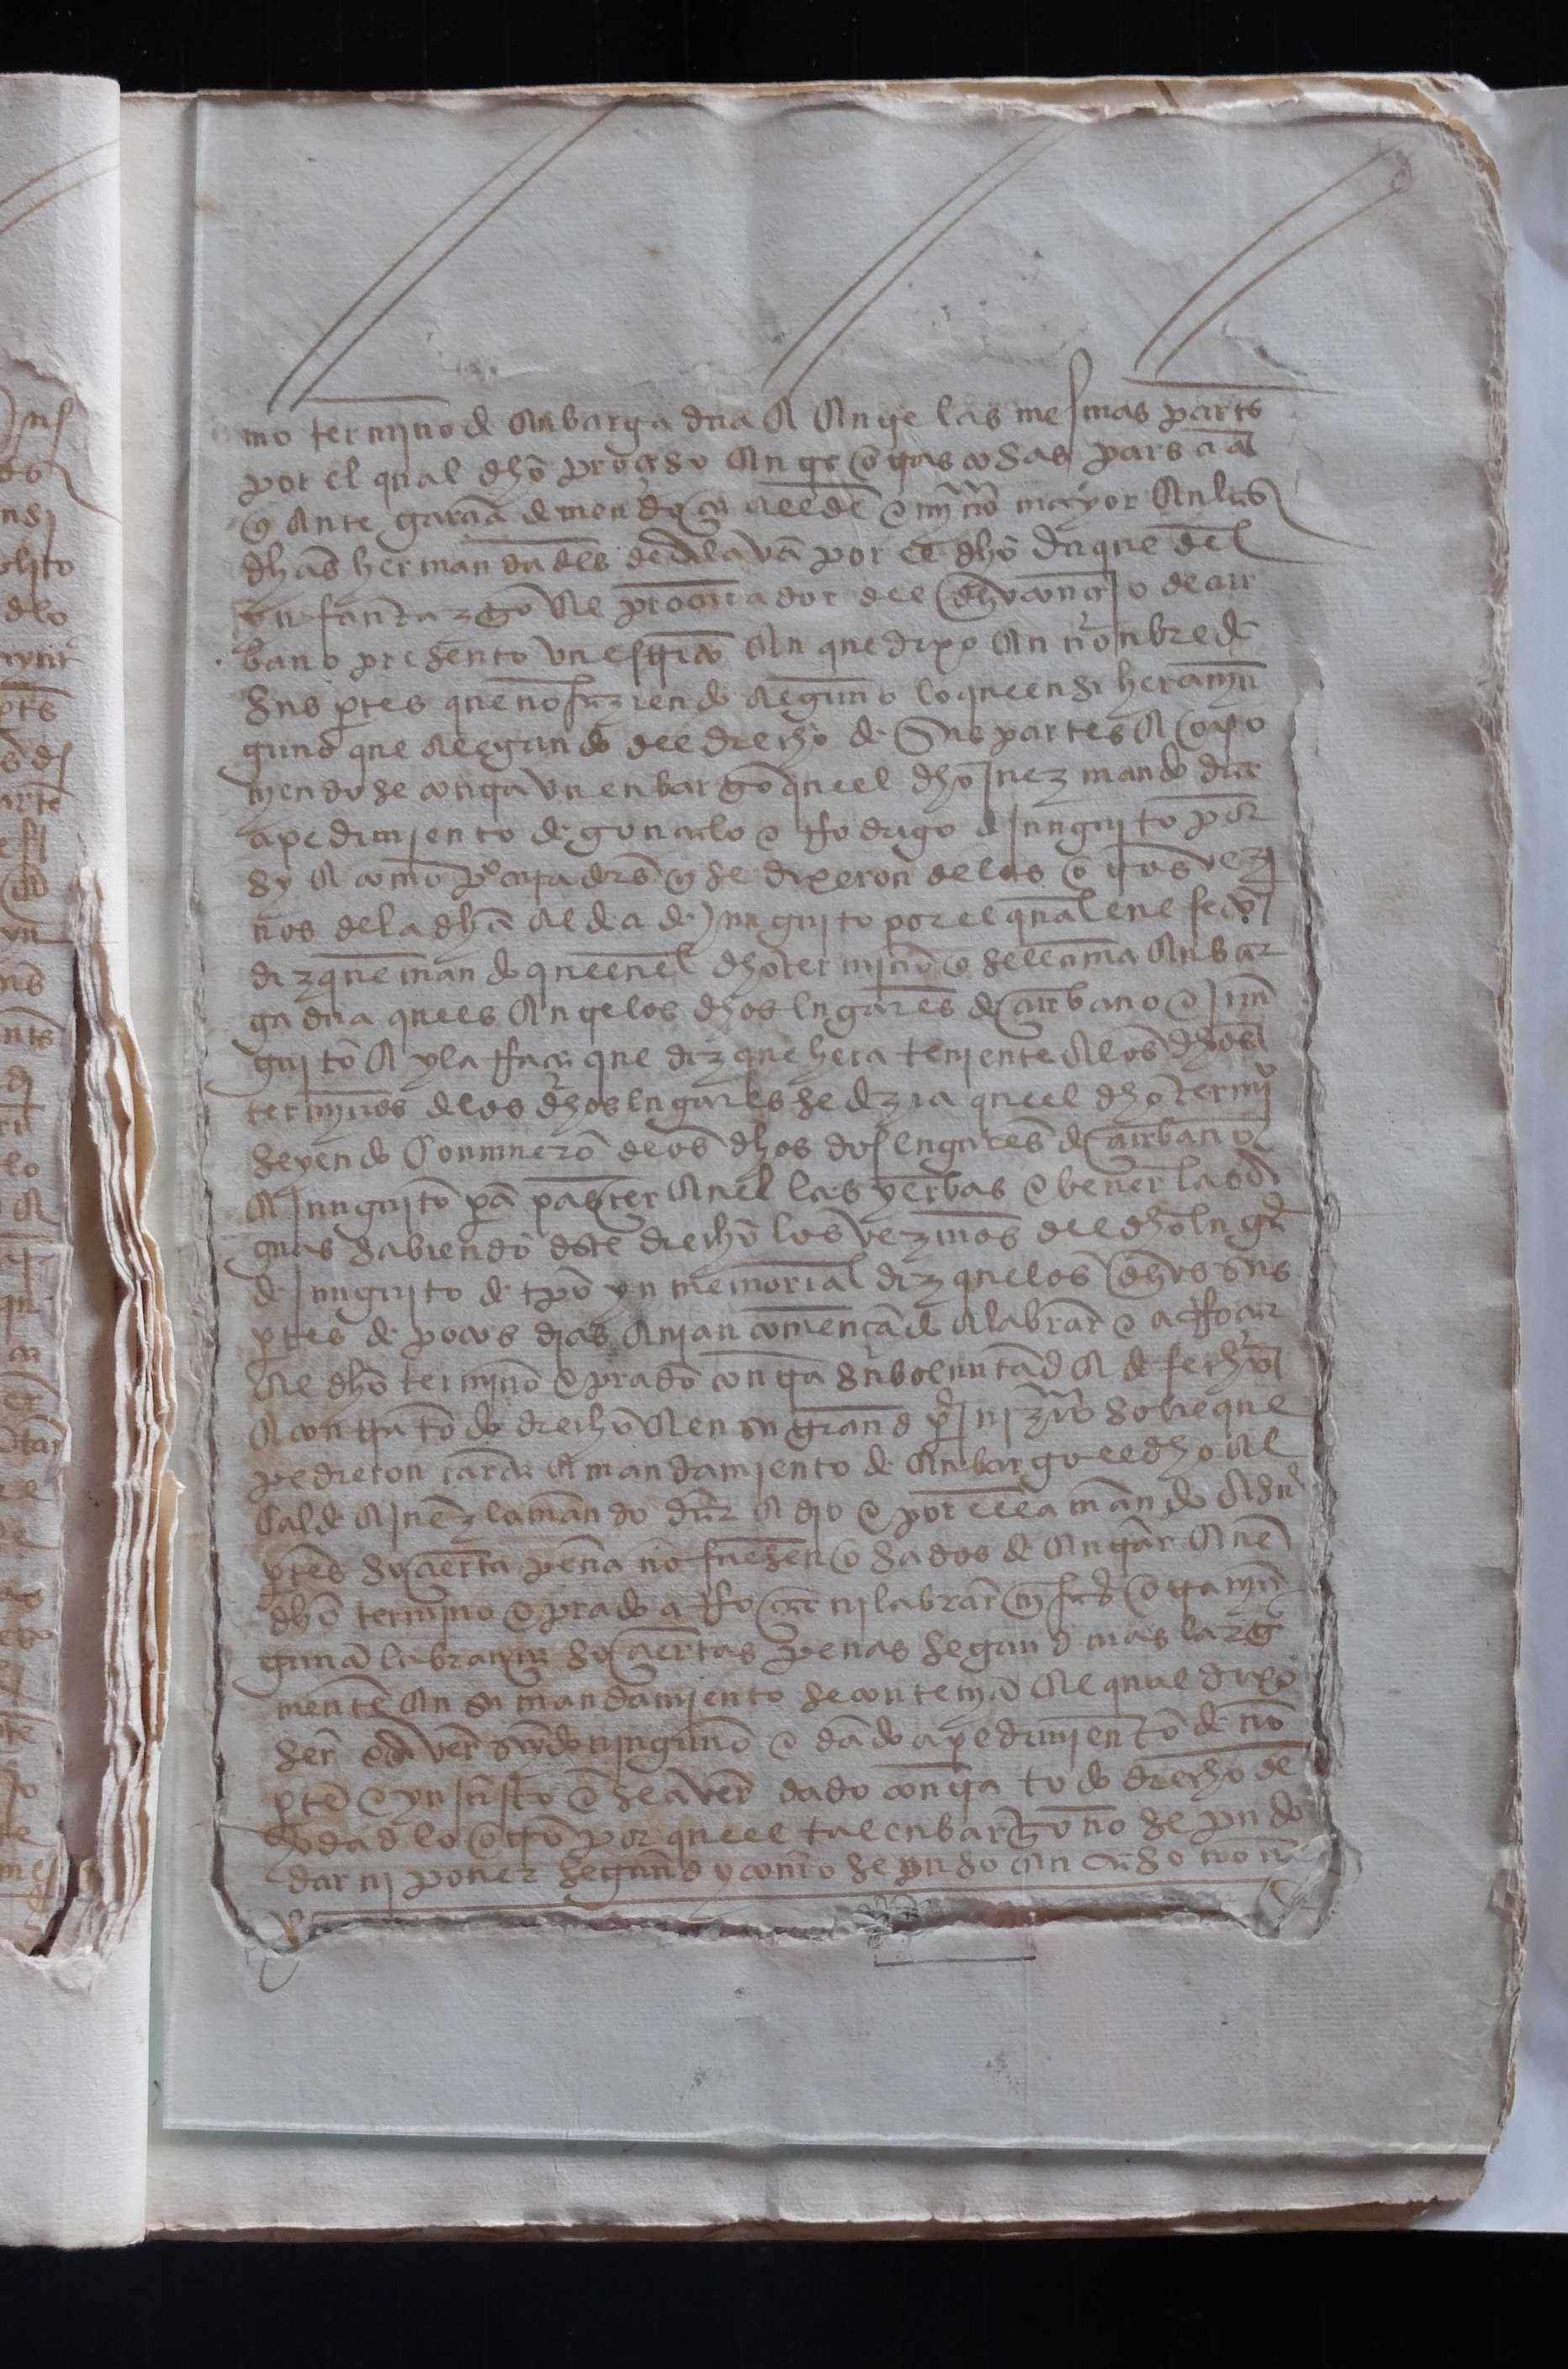 mo termino de anbarga dna A Ante las mesmas partes
por el qual dho proçeso Antre otras cosas paresçia
q Ante garcia de mendoça allde e mjno mayor An las
dhas hermandades de alava por el dho duque del
ynfantazgo Al procurador del dho conçejo de arr
bano presento vn escripto An que dixo An nonbre de
sus ptes que no faziendo Alguno lo que en si hera nyn
gund que Alegando del drecho de sus partes A opo
nyendose contra vn enbargo quel dho Juez mando dar
a pedimjento de gonçalo e Rodrigo de Junguito por
sy A como procuradores q se dixeron de los otros vezi
nos de la dha Aldea de Junguito por el qual en efecto
diz que mando que en el dho termjno q se llama Anbar
ga dna que es Antre los dhos lugares de arrbano e Jun
guito A yla Raça que diz que hera tenjente A los dhos
termynos de los dhos lugares se dezia quel dho termjno
seyendo Comunero de los dhos dos lugares de arrbano
A Junguito pa pasçer Anel las yerbas e bever las A
guas sabiendo este drecho los vezinos del dho lugar
de Junguito de tpo yn memorial diz que los dhos sus
ptes de pocos djas Avian comencado A labrar e a Roçar
Al dho termjno e prado contra su voluntad A de fecho
A contra todo drecho A en su grand perjuizio sobre que
pedieron carta A mandamjento de Anbargo e el dho Al
calde A juez la mando dar A dio e por ella mando A sus
ptes so çierta pena no fuesen osados de Antrar Anel
dho termino e prado a Roçar nj labrar nj fazer otra nyn
guna labrança so çiertas penas segund mas larga
mente An su mandamjento se contenya Al qual dixo
ser e dever seydo ninguno e dado a pedimjento de no
pte e ynjusto e se aver dado contra todo drecho de
lo otro por quel tal enbargo no se pudo
dar nj poner segund y como se puso An caso no